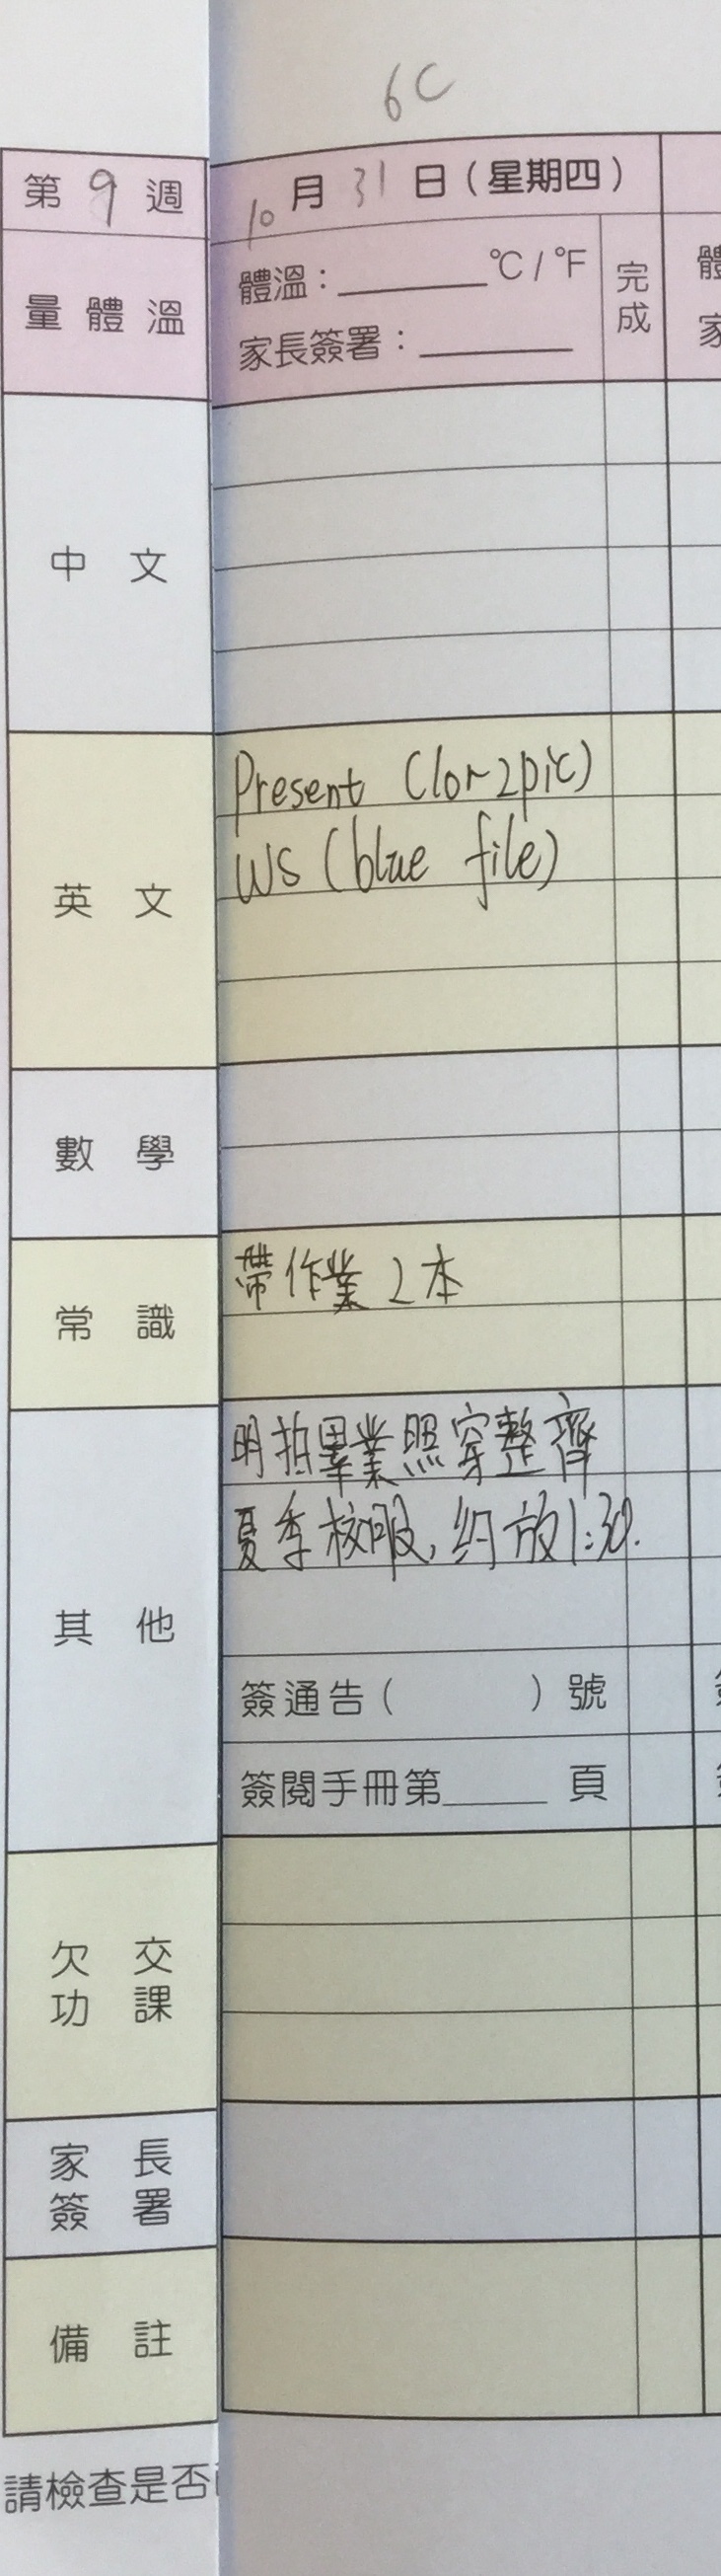 6C
第 9 週
10 月 31 日 (星期四)
量 體 溫
體溫：______°C / °F
家長簽署：______
完成
體
家
中 文
英 文
Present (1or2pic)
WS (blue file)
數 學
常 識
帶作業2本
其 他
明拍畢業照穿整齊
夏季校服，約放1:30.
簽通告 (　　　) 號
簽閱手冊第______頁
欠 交
功 課
家 長
簽 署
備 註
請檢查是否